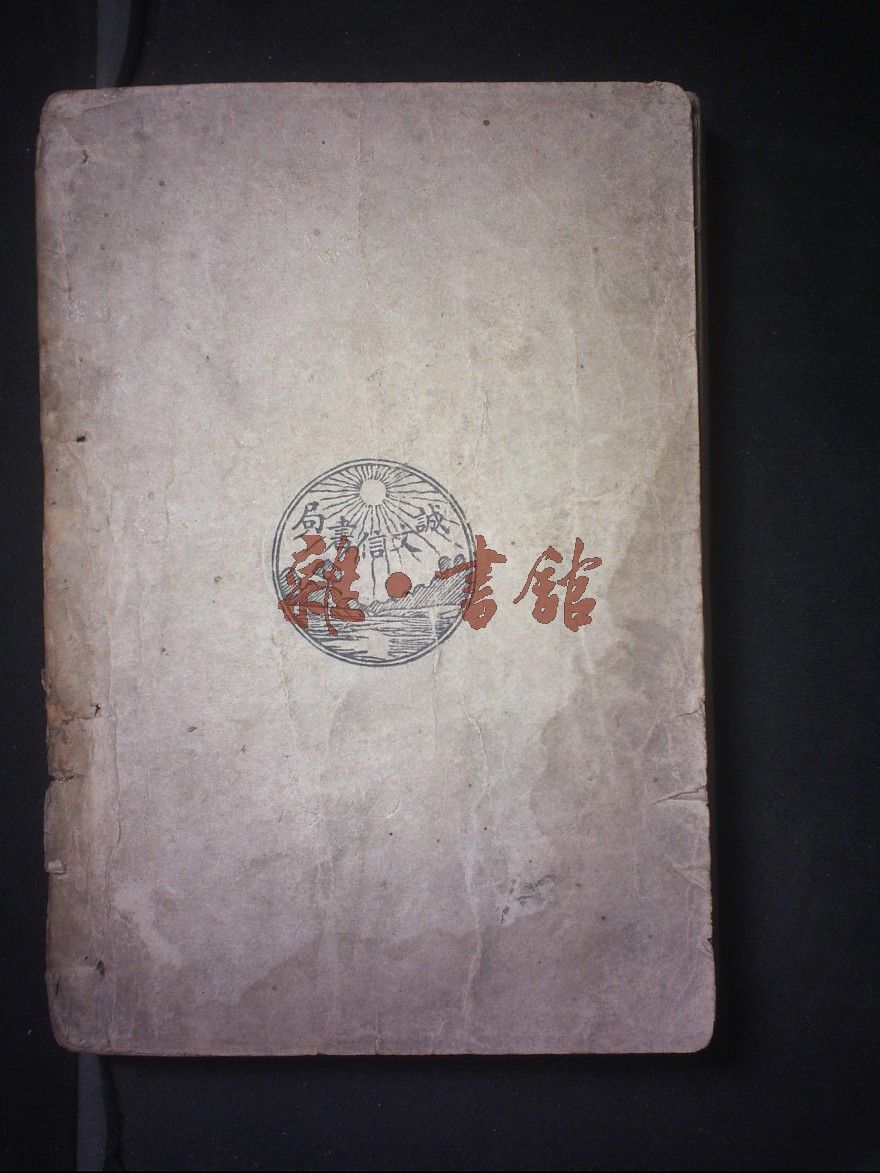 誠文信書局
雜·書館